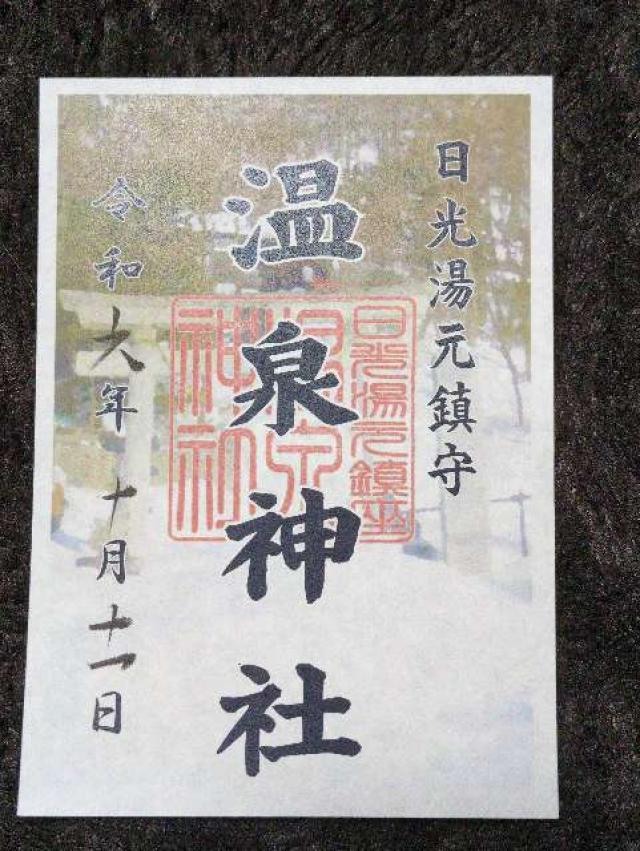 日光湯元鎮守
温泉神社
日光湯元鎮座
温泉
神社
令和六年十月十一日